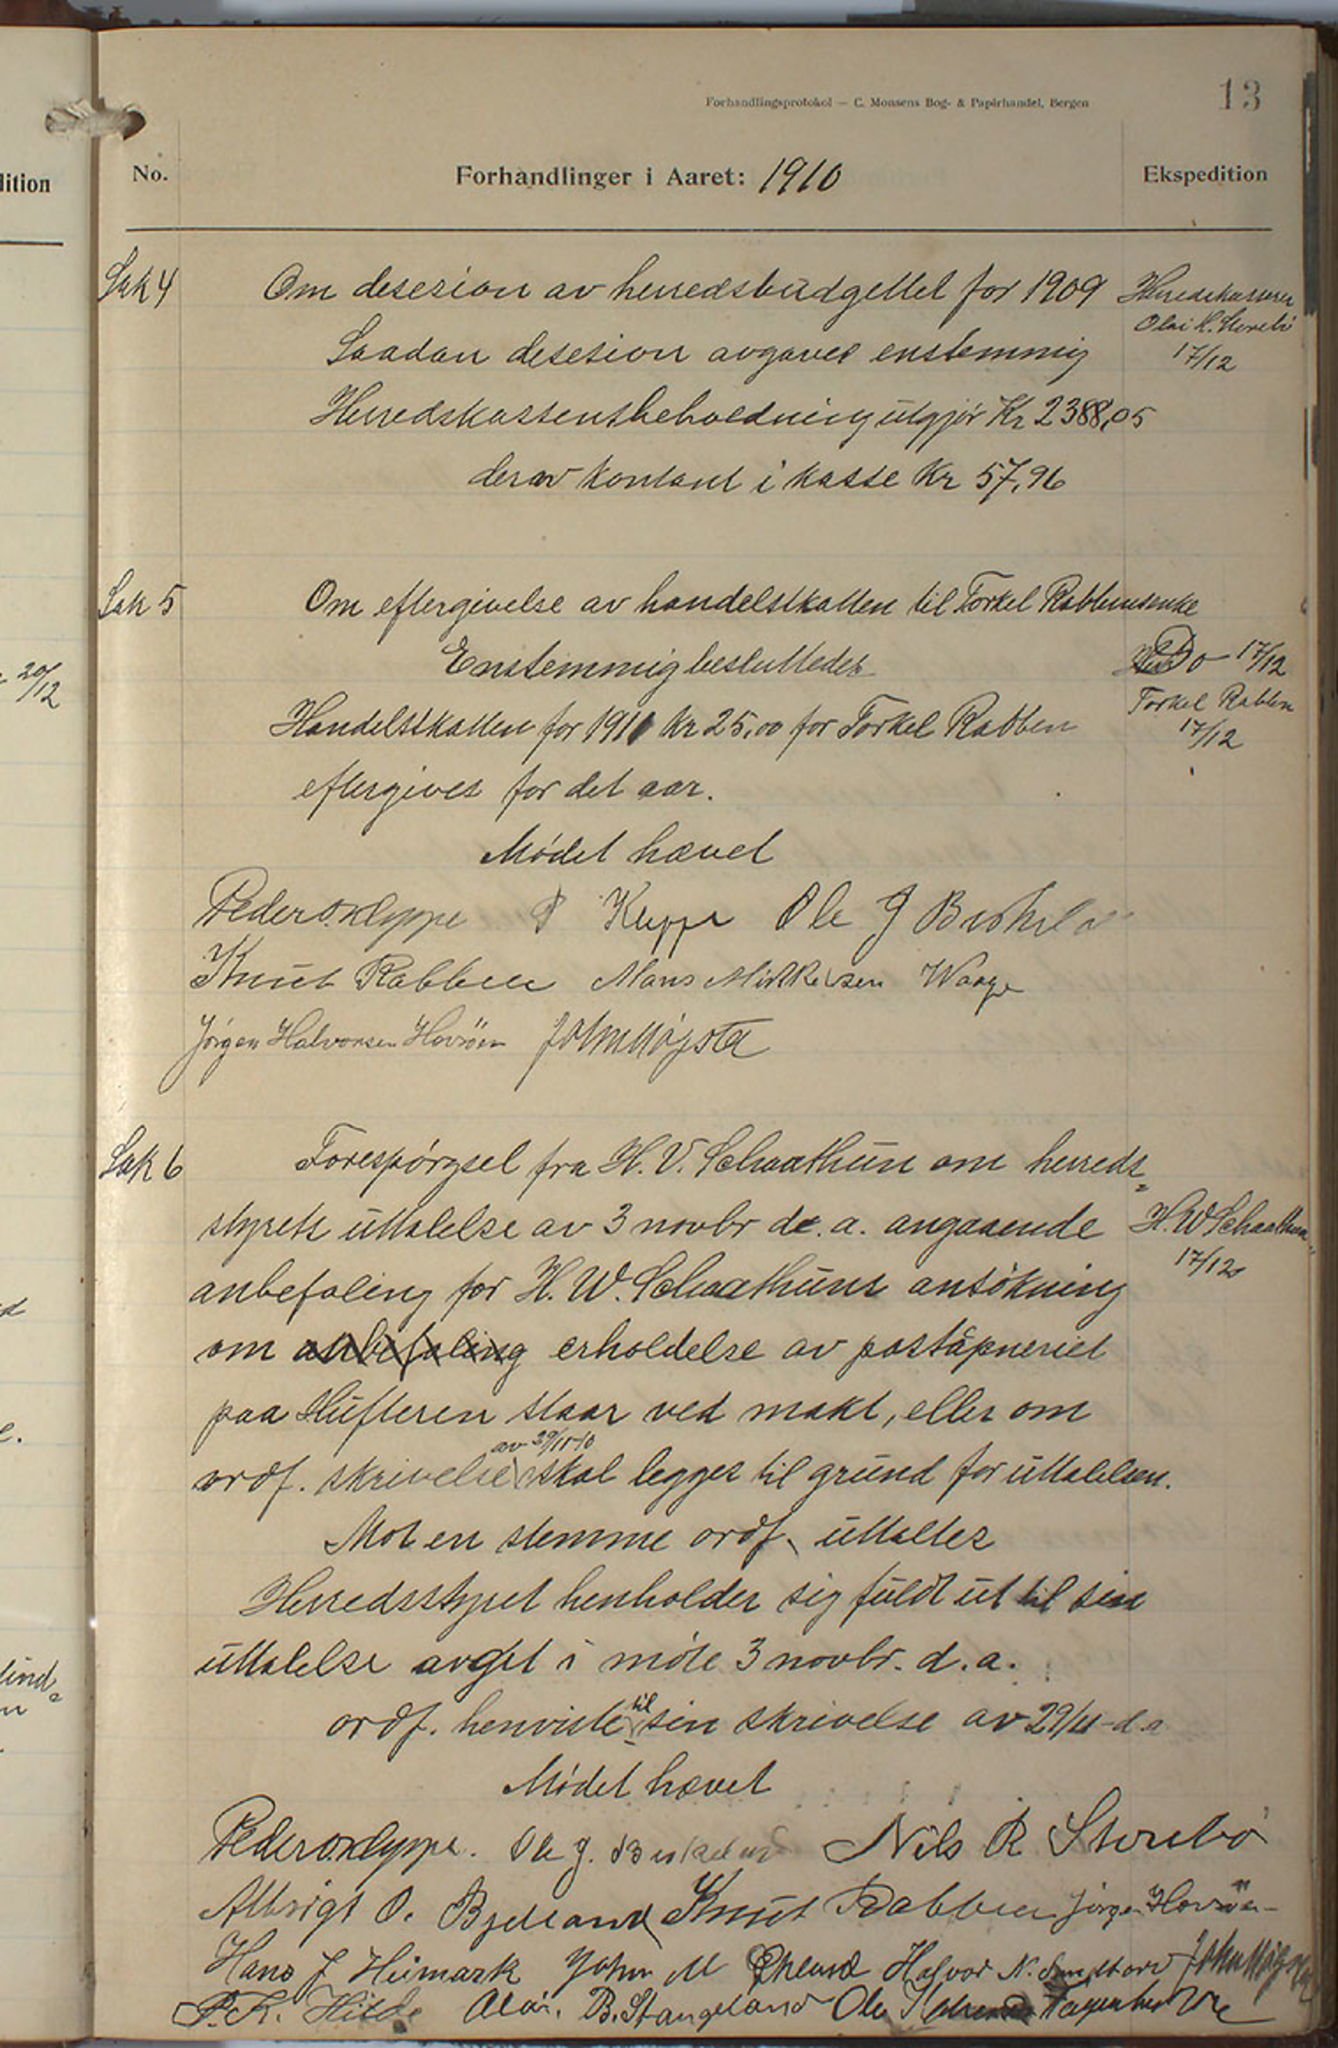 Forhandlingsprotokol — C. Monsens Bog- & Papirhandel, Bergen
13
dition
No.
Forhandlinger i Aaret: 1910
Ekspedition
Sak 4
Om desesion av herredsbudgettet for 1909
Herredskasserer
Olai K. Storebö
17/12
Saadan desesion avgaves enstemmig
Herredskassensbeholdning utgjör Kr 2388,05
derav kontant i kasse Kr 57,96
Sak 5
Om eftergivelse av handelskatten til Torkel Rabbens enke
Enstemmig beslutledes
Do 17/12
Torkel Rabben
17/12
20/12
Handelskatten for 1910 Kr 25,00 for Torkel Rabben
eftergives for det aar.
Mödet hævet
Peder O. Kleppe P Kleppe Ole J
Knut Rabben Mons Mikkelsen Waage
Jörgen Halvorsen Horsöen John Högsta
Sak 6
Forespörgsel fra H. V. Schaathun om herreds=
styrets uttalelse av 3 novbr de. a. angaaende
H. W Schaathun
17/12
anbefaling for H. W. Schaathuns ansökning
om anbefaling erholdelse av poståpneriet
paa Hufteren staar ved makt, eller om
av 29/11-10
ordf. skrivelse skal legges til grund for uttalelsen.
Mot en stemme ordf. uttaltes
Herredsstyret henholder sig fuldt ut til sin
uttalelse avget i möte 3 novbr. d. a.
til
ordf. henviste sin skrivelse av 29/11-d.a
Mödet hævet
Peder O. Kleppe. Ole J. Nils R Storebö
Albrigt O. Bjelland Knut Rabben Jörgen Horsöen
Hans J Heimark John M Halvor N. John Högsta
P. K. Hilde B. Stangeland Ole